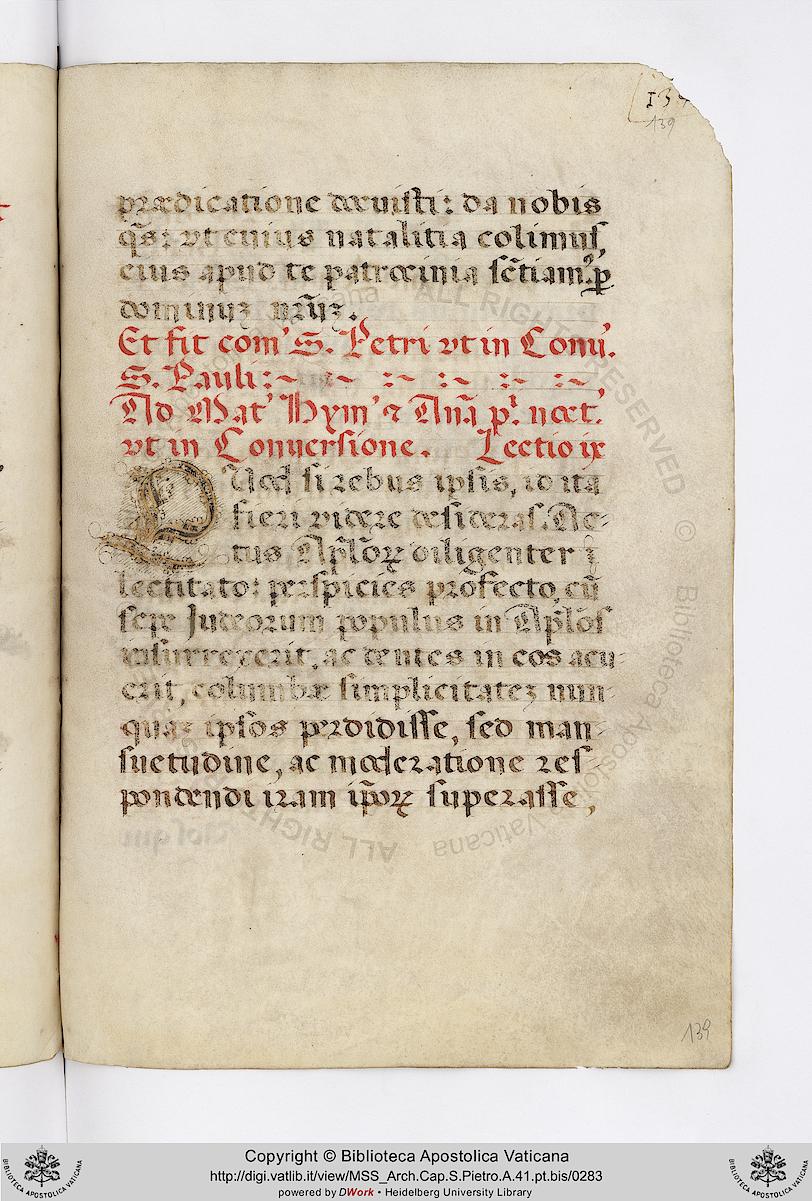 134
139
prædicatione docuisti: da nobis
q̃s: vt cuius natalitia colimus,
eius apud te patrocinia sẽtiam9. p̱
dominuʒ nr̃uʒ.
Et fit com' S. Petri vt in Conu'.
S. Pauli:
Ad Mat' Hym' ⁊ Anã p.' noct.'
vt in Conuersione. Lectio ix
Quod si rebus ipsis, id ita
fieri videre desideras. Ac-
tus Ap̃loꝝ diligenter
lectitato: perspicies profecto, cũ
sepe Judeorum populus in Ap̃los
insurrexerit, ac dentes in eos acu-
erit, columbæ simplicitateʒ nun-
quaʒ ipsos perdidisse, sed man-
suetudine, ac moderatione res-
pondendi iram ip̃oꝝ superasse,
139
ALL RIGHTS RESERVED © Biblioteca Apostolica Vaticana
Copyright © Biblioteca Apostolica Vaticana
http://digi.vatlib.it/view/MSS_Arch.Cap.S.Pietro.A.41.pt.bis/0283
powered by DWork • Heidelberg University Library
BIBLIOTECA APOSTOLICA VATICANA
BIBLIOTECA APOSTOLICA VATICANA